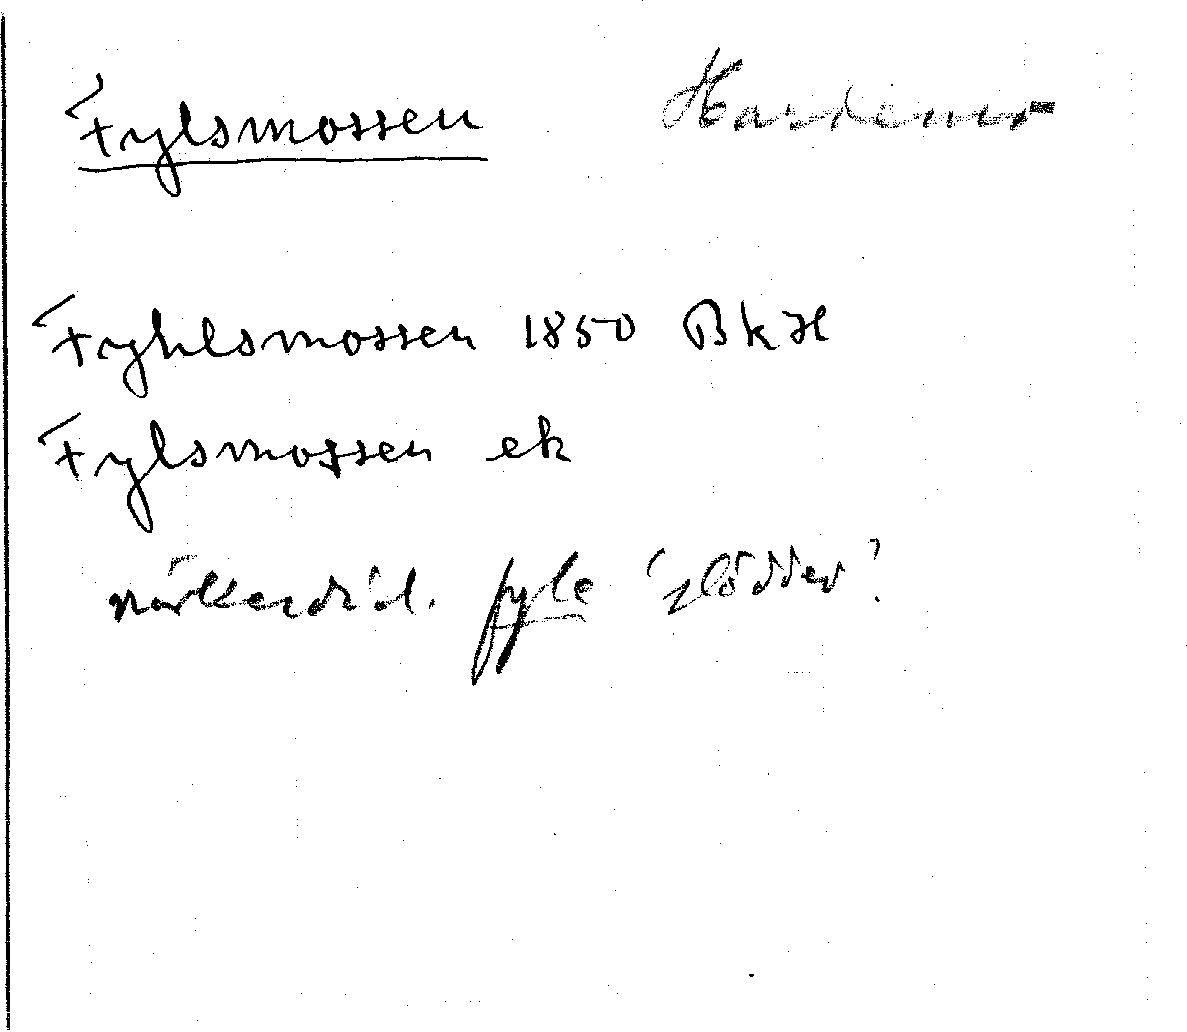 Fylsmossen Hardemo
Fyhlsmossen 1850 BkH
Fylsmossen ek
närkedial. fyle 'slödder'?